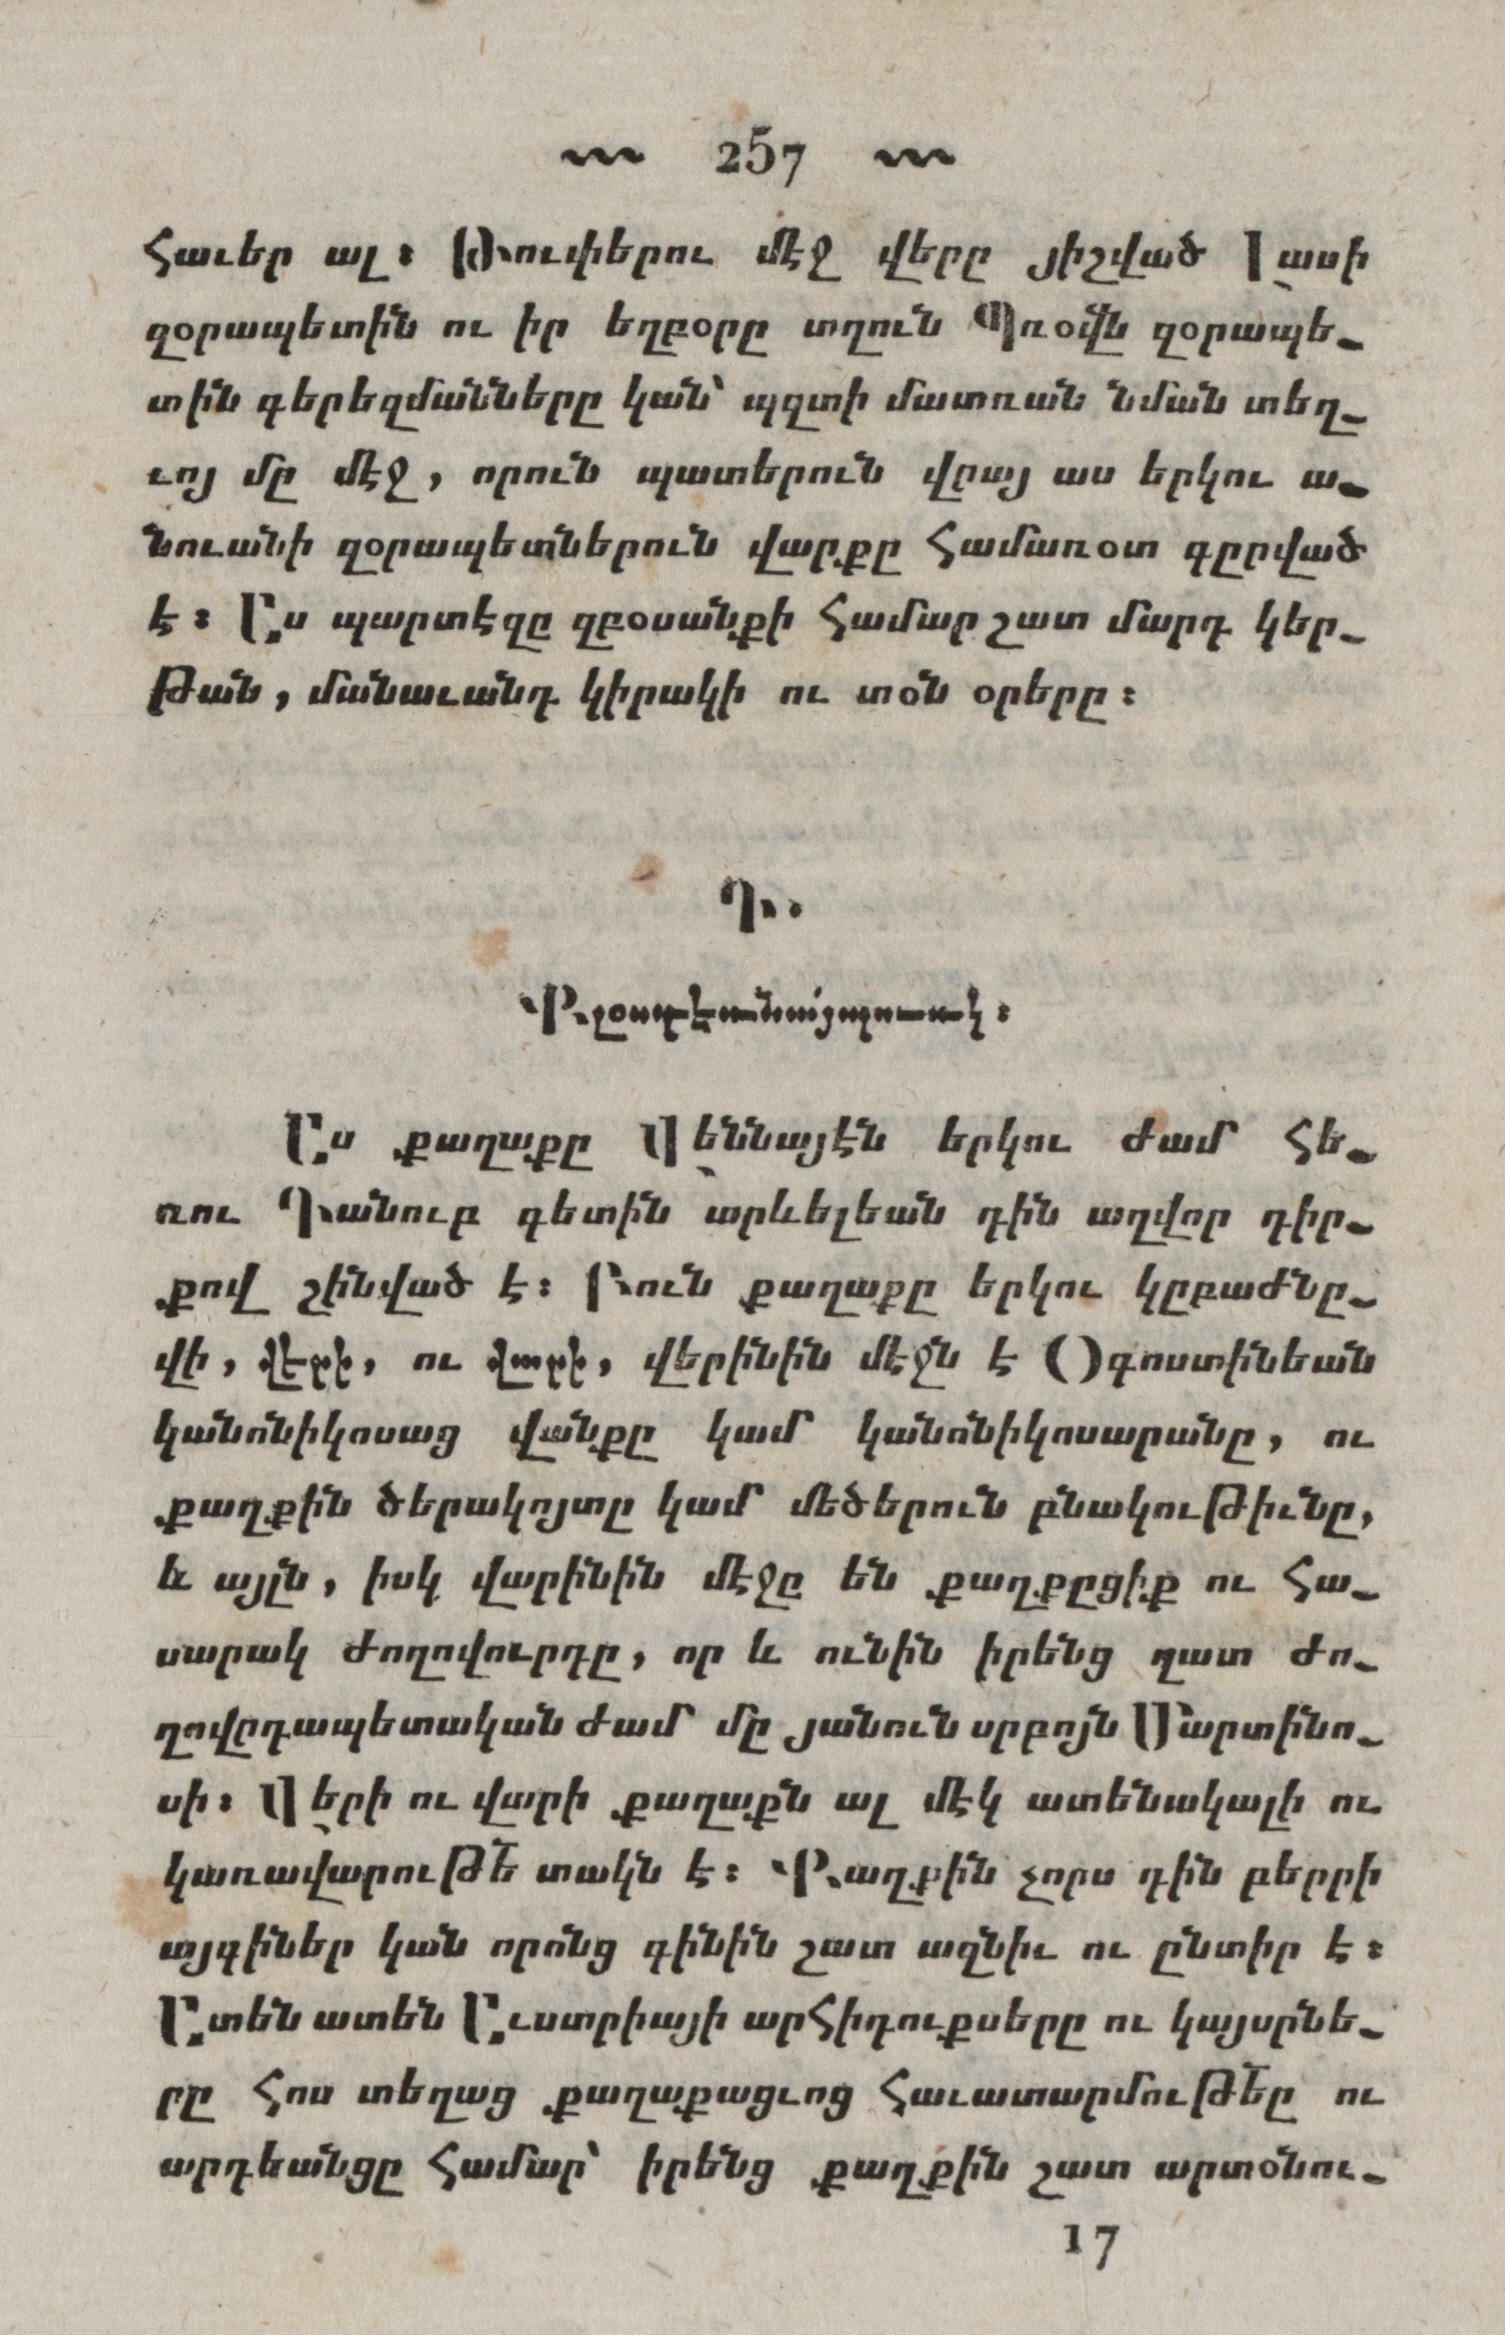 257
հաւեր ալ։ Թուփերու մէջ վերը յիշված Լասի
զօրապետին ու իր եղբօրը տղուն Պռօվն զօրապե-
տին գերեզմանները կան՝ պզտի մատռան նման տեղ-
ւոյ մը մէջ, որուն պատերուն վրայ աս երկու ա-
նուանի զօրապետներուն վարքը համառօտ գըրված
է։ Աս պարտէզը զբօսանքի համար շատ մարդ կեր-
թան, մանաւանդ կիրակի ու տօն օրերը։
Դ.
Քլօստէռնայպուռկ։
Աս քաղաքը Վեննայէն երկու ժամ հե-
ռու Դանուբ գետին արևելեան դին աղվոր դիր-
քով շինված է։ Բուն քաղաքը երկու կըբաժնը-
վի, վերի, ու վարի, վերինին մէջն է Օգոստինեան
կանոնիկոսաց վանքը կամ կանոնիկոսարանը, ու
քաղքին ծերակոյտը կամ մեծերուն բնակութիւնը,
և այլն, իսկ վարինին մէջը են քաղքըցիք ու հա-
սարակ ժողովուրդը, որ և ունին իրենց զատ ժո-
ղովըդապետական ժամ մը յանուն սրբոյն Մարտինո-
սի։ Վերի ու վարի քաղաքն ալ մէկ ատենակալի ու
կառավարութե տակն է։ Քաղքին չորս դին բերրի
այգիներ կան որոնց գինին շատ ազնիւ ու ընտիր է։
Ատեն ատեն Աւստրիայի արհիդուքսերը ու կայսրնե-
րը հոս տեղաց քաղաքացւոց հաւատարմութեը ու
արդեանցը համար՝ իրենց քաղքին շատ արտօնու-
17